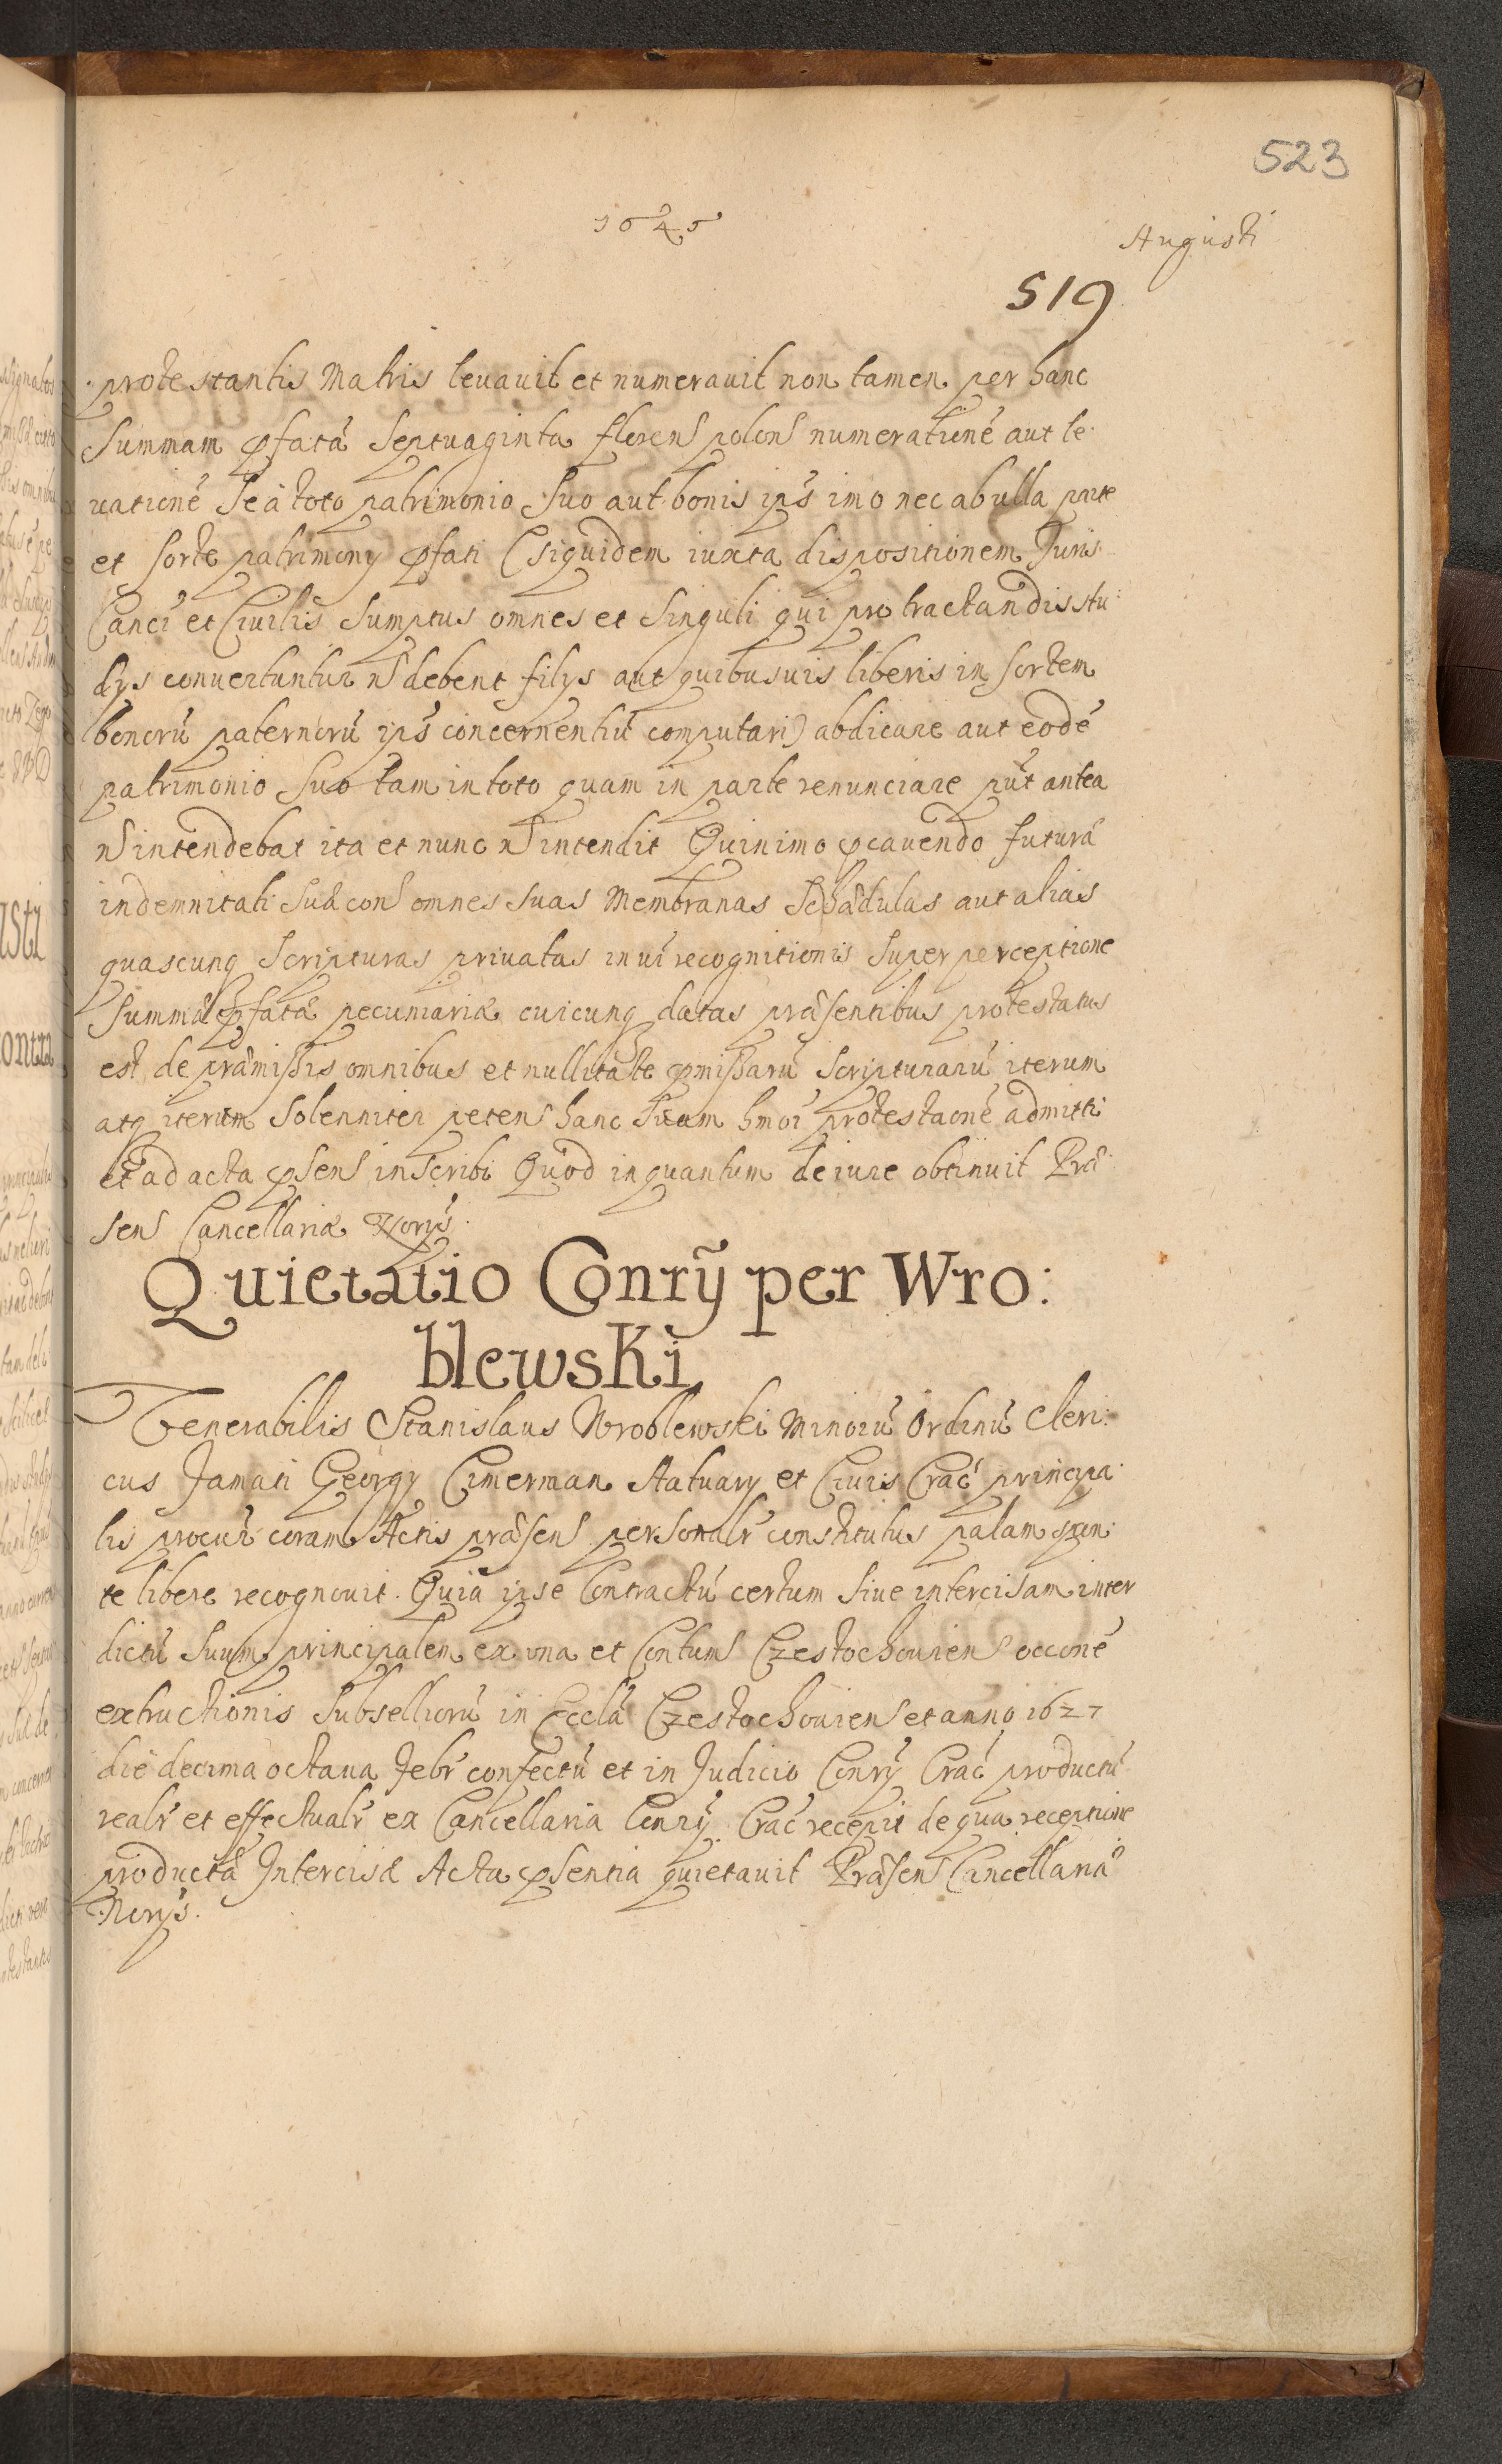 523
1645
Augusti
519
protestantis Matris levavit et numeravit non tamen per hanc
Summam pfatā Septuaginta florens polons numerationē aut le-
vationē se à toto patrimonio suo aut bonis ips imo nec ab ulla parte
et sorte patrimony pfati (siquidem iuxta dispositionem Juris
Canci et Civilis sumptus omnes et singuli qui pro tractandis stu:
dys convertuntur n debent filys aut quibusvis liberis in sortem
bonorū paternorū ips concernentiū computari) abdicare aut eodē
patrimonio suo tam in toto quam in parte renunciare put antea
n intendebat ita et nunc n intendit Quinimo pcavendo futurā
indemnitati suæ cons omnes suas Membranas Schædulas aut alias
quascunq Scripturas privatas in vi recognitionis super perceptione
Summæ pfatæ pecuniariæ cuicunq datas præsentibus protestatus
est de præmissis omnibus et nullitate pmissarū Scripturarū iterum
atq iterum Solenniter petens hanc suam hmoi protestaonē admitti
et ad acta psens inscribi Quod inquantum de iure obtinuit Præ:
sens Cancellariæ Norÿs.
Quietatio Conrÿ per Wro:
blewski
Venerabilis Stanislaus Wroblewski Minorū Ordinū Cleri:
cus Famati Georgy Cimerman Statuary et Civis Crac principa:
lis procur coram Actis præsens personalr constitutus palam spon:
te libere recognovit. Quia ipse Contractū certum sive intercisam inter
dictū suum principalem ex una et Contums Czestochoviens occonē
extructionis Subselliorū in Eccla Czestochoviens et anno 1627
die decima octava Febr confectū et in Judicio Conrÿ Crac productū
realr et effectualr ex Cancellaria Conrÿ Crac recepit de qua receptione
productæ Intercisæ Acta psentia quietavit Præsens Cancellariæ
Norÿs.